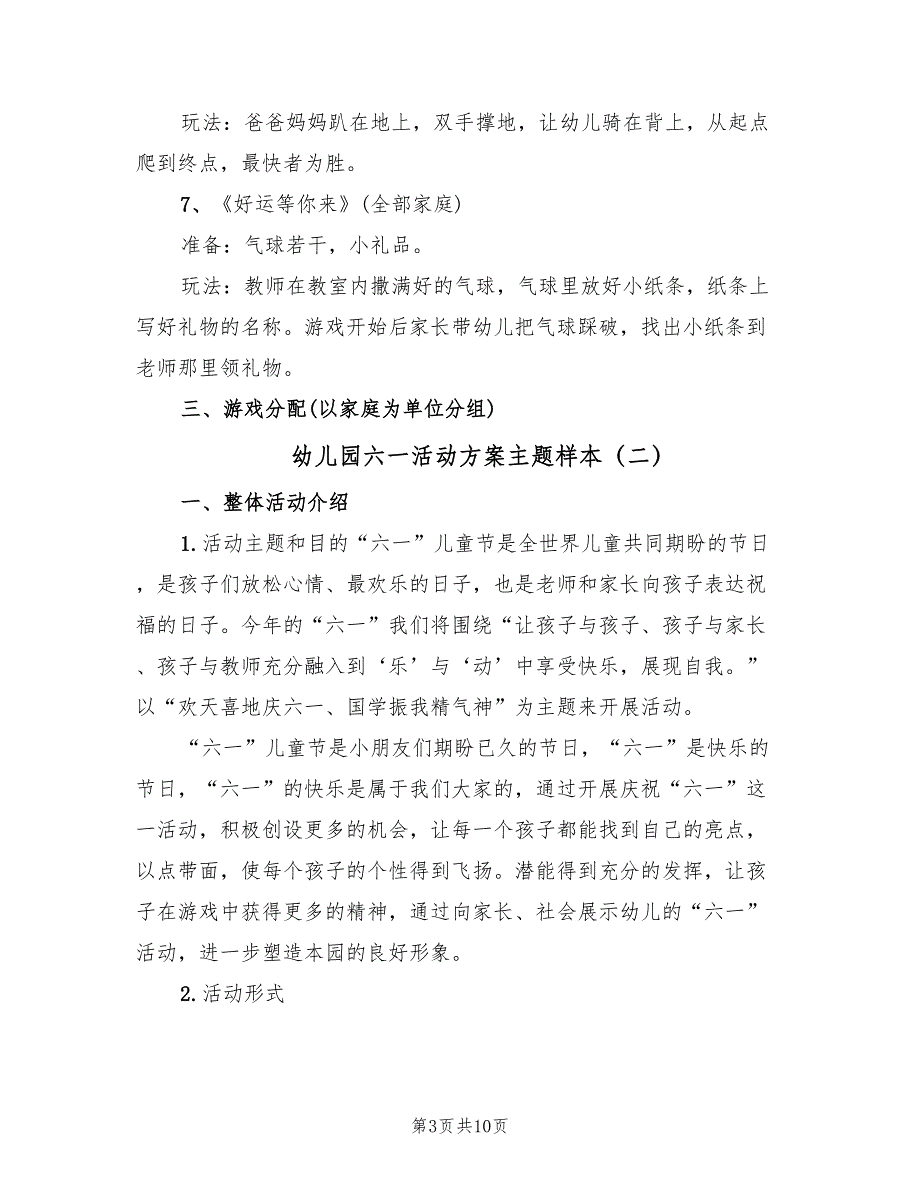 玩法：爸爸妈妈趴在地上，双手撑地，让幼儿骑在背上，从起点
爬到终点，最快者为胜。
7、《好运等你来》(全部家庭)
准备：气球若干，小礼品。
玩法：教师在教室内撒满好的气球，气球里放好小纸条，纸条上
写好礼物的名称。游戏开始后家长带幼儿把气球踩破，找出小纸条到
老师那里领礼物。
三、游戏分配(以家庭为单位分组)
幼儿园六一活动方案主题样本（二）
一、整体活动介绍
1.活动主题和目的“六一”儿童节是全世界儿童共同期盼的节日
，是孩子们放松心情、最欢乐的日子，也是老师和家长向孩子表达祝
福的日子。今年的“六一”我们将围绕“让孩子与孩子、孩子与家长
、孩子与教师充分融入到‘乐’与‘动’中享受快乐，展现自我。”
以“欢天喜地庆六一、国学振我精气神”为主题来开展活动。
“六一”儿童节是小朋友们期盼已久的节日，“六一”是快乐的
节日，“六一”的快乐是属于我们大家的，通过开展庆祝“六一”这
一活动，积极创设更多的机会，让每一个孩子都能找到自己的亮点，
以点带面，使每个孩子的个性得到飞扬。潜能得到充分的发挥，让孩
子在游戏中获得更多的精神，通过向家长、社会展示幼儿的“六一”
活动，进一步塑造本园的良好形象。
2.活动形式
第3页共10页